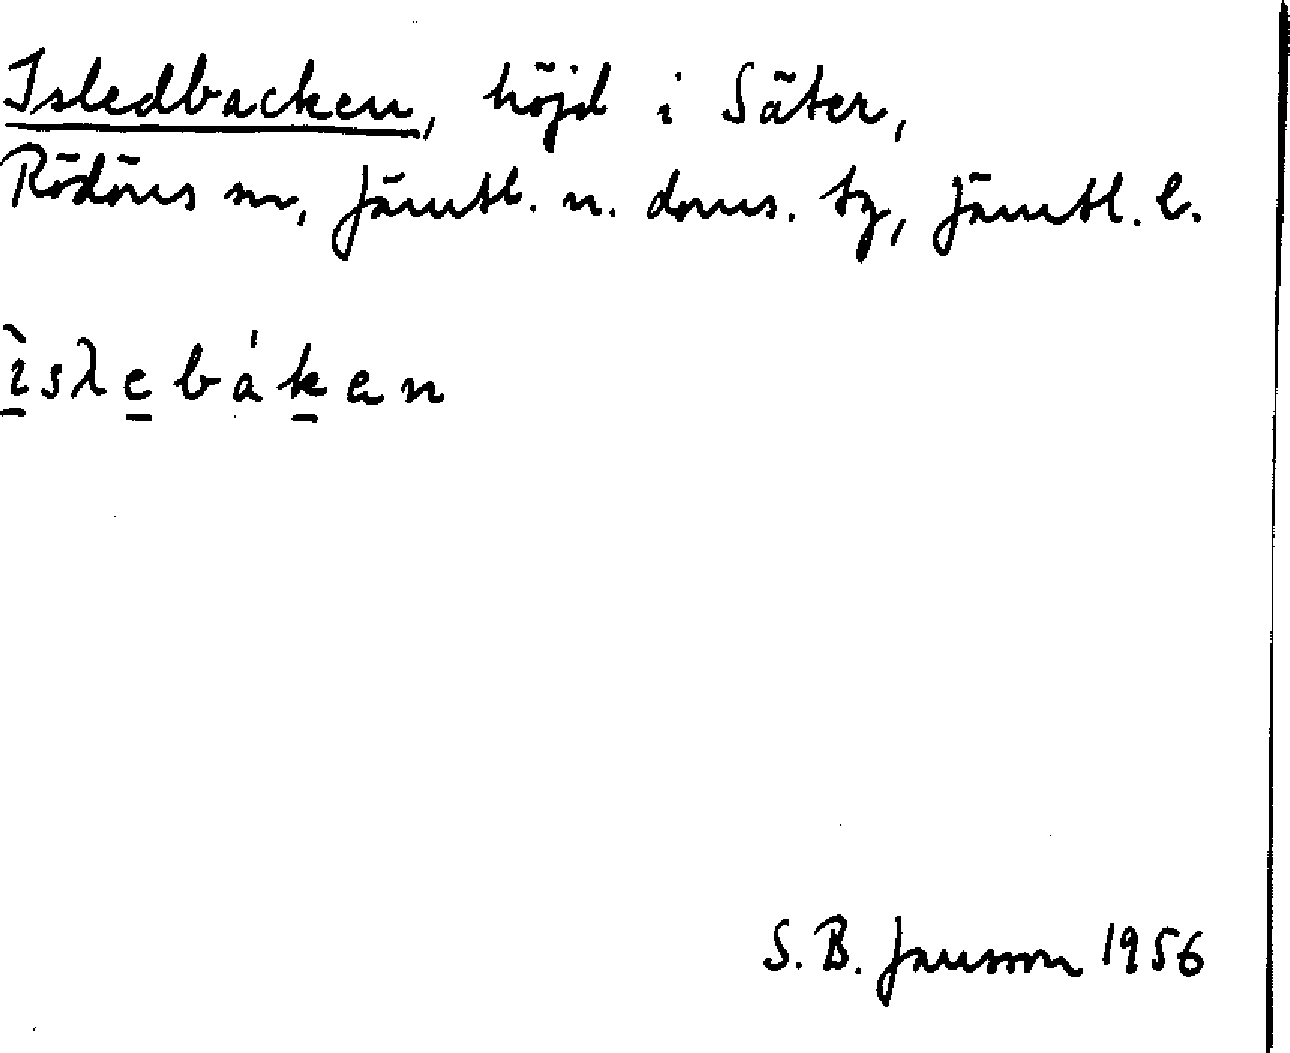 Isledbacken, höjd i Säter,
Rödöns sn, Jämtl. n. doms. tg, Jämtl. l.
ìsλebáken
S.B. Jansson 1956